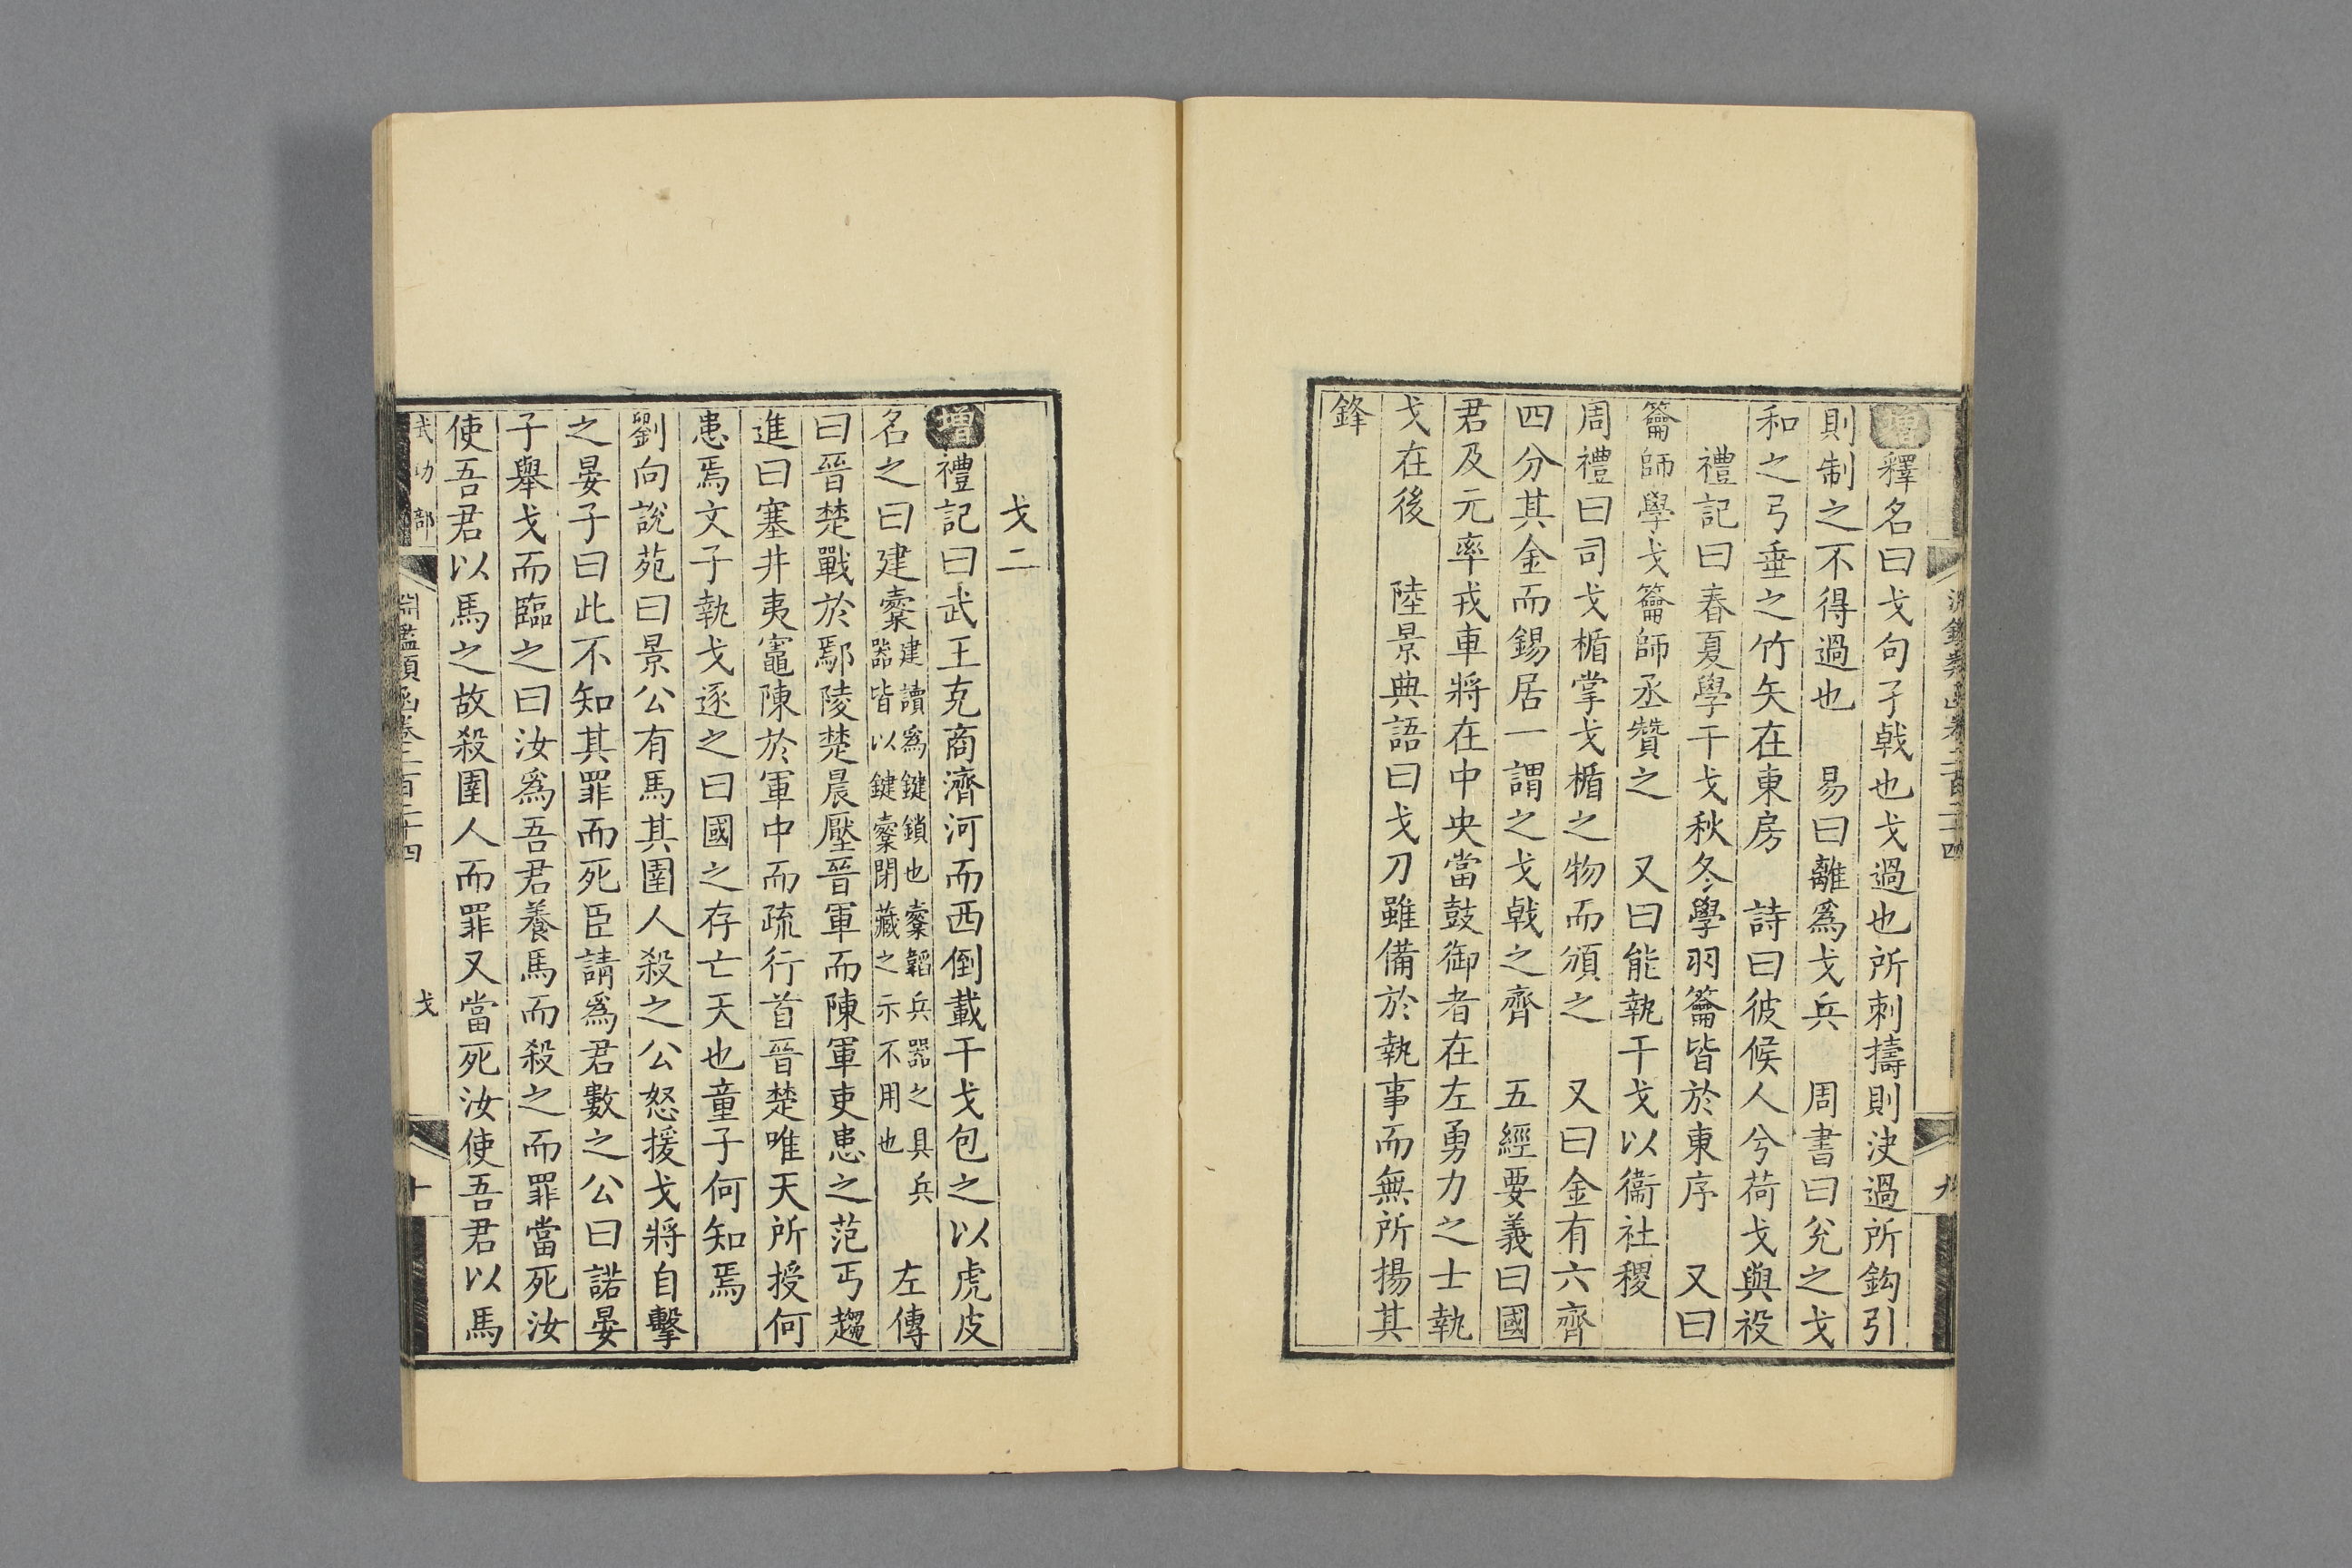 增釋名曰戈句孑戟也戈過也所刺擣則決過所鈎引
則制之不得過也　易曰離爲戈兵　周書曰兊之戈
和之弓垂之竹矢在東房　詩曰彼候人兮荷戈與祋
禮記曰春夏學干戈秋冬學羽籥皆於東序　又曰
籥師學戈籥師丞贊之　又曰能執干戈以衞社稷
周禮曰司戈楯掌戈楯之物而頒之　又曰金有六齊
四分其金而錫居一謂之戈戟之齊　五經要義曰國
君及元率戎車將在中央當鼓御者在左勇力之士執
戈在後　陸景典語曰戈刀雖備於執事而無所揚其
鋒
戈二
增禮記曰武王克商濟河而西倒載干戈包之以虎皮
名之曰建櫜建讀爲鍵鎖也櫜韜兵器之具兵器皆以鍵櫜閉藏之示不用也　左傳
曰晉楚戰於鄢陵楚晨壓晉軍而陳軍吏患之范丐趨
進曰塞井夷竈陳於軍中而疏行首晉楚唯天所授何
患焉文子執戈逐之曰國之存亡天也童子何知焉
劉向說苑曰景公有馬其圉人殺之公怒援戈將自擊
之晏子曰此不知其罪而死臣請爲君數之公曰諾晏
子舉戈而臨之曰汝爲吾君養馬而殺之而罪當死汝
使吾君以馬之故殺圉人而罪又當死汝使吾君以馬
武功部　淵鑑類函卷二百二十四　戈　十